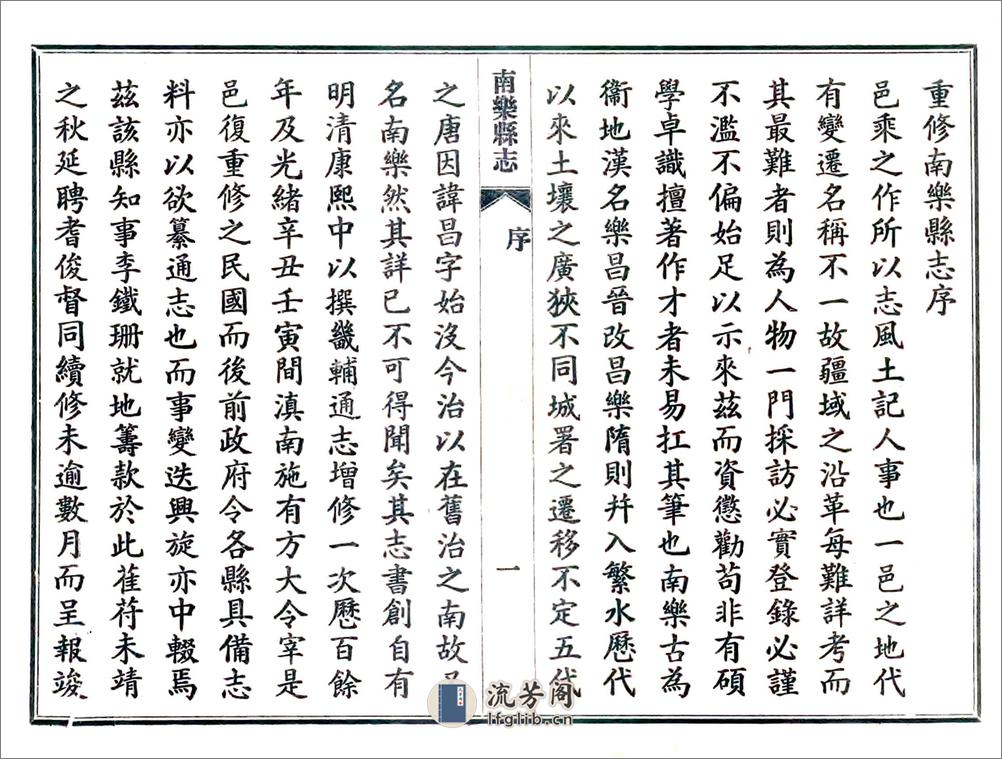 重修南樂縣志序
邑乘之作所以志風土記人事也一邑之地代
有變遷名稱不一故疆域之沿革每難詳考而
其最難者則為人物一門採訪必實登錄必謹
不濫不偏始足以示來茲而資懲勸苟非有碩
學卓識擅著作才者未易扛其筆也南樂古為
衞地漢名樂昌晉改昌樂隋則幷入繁水歷代
以來土壤之廣狹不同城署之遷移不定五代
南樂縣志
序
一
之唐因諱昌字始沒今治以在舊治之南故
名南樂然其詳已不可得聞矣其志書創自有
明清康熙中以撰畿輔通志增修一次歷百餘
年及光緒辛丑壬寅間滇南施有方大令宰是
邑復重修之民國而後前政府令各縣具備志
料亦以欲纂通志也而事變迭興旋亦中輟焉
茲該縣知事李鐵珊就地籌款於此萑苻未靖
之秋延聘耆俊督同續修未逾數月而呈報竣
流芳阁
lfglib.cn